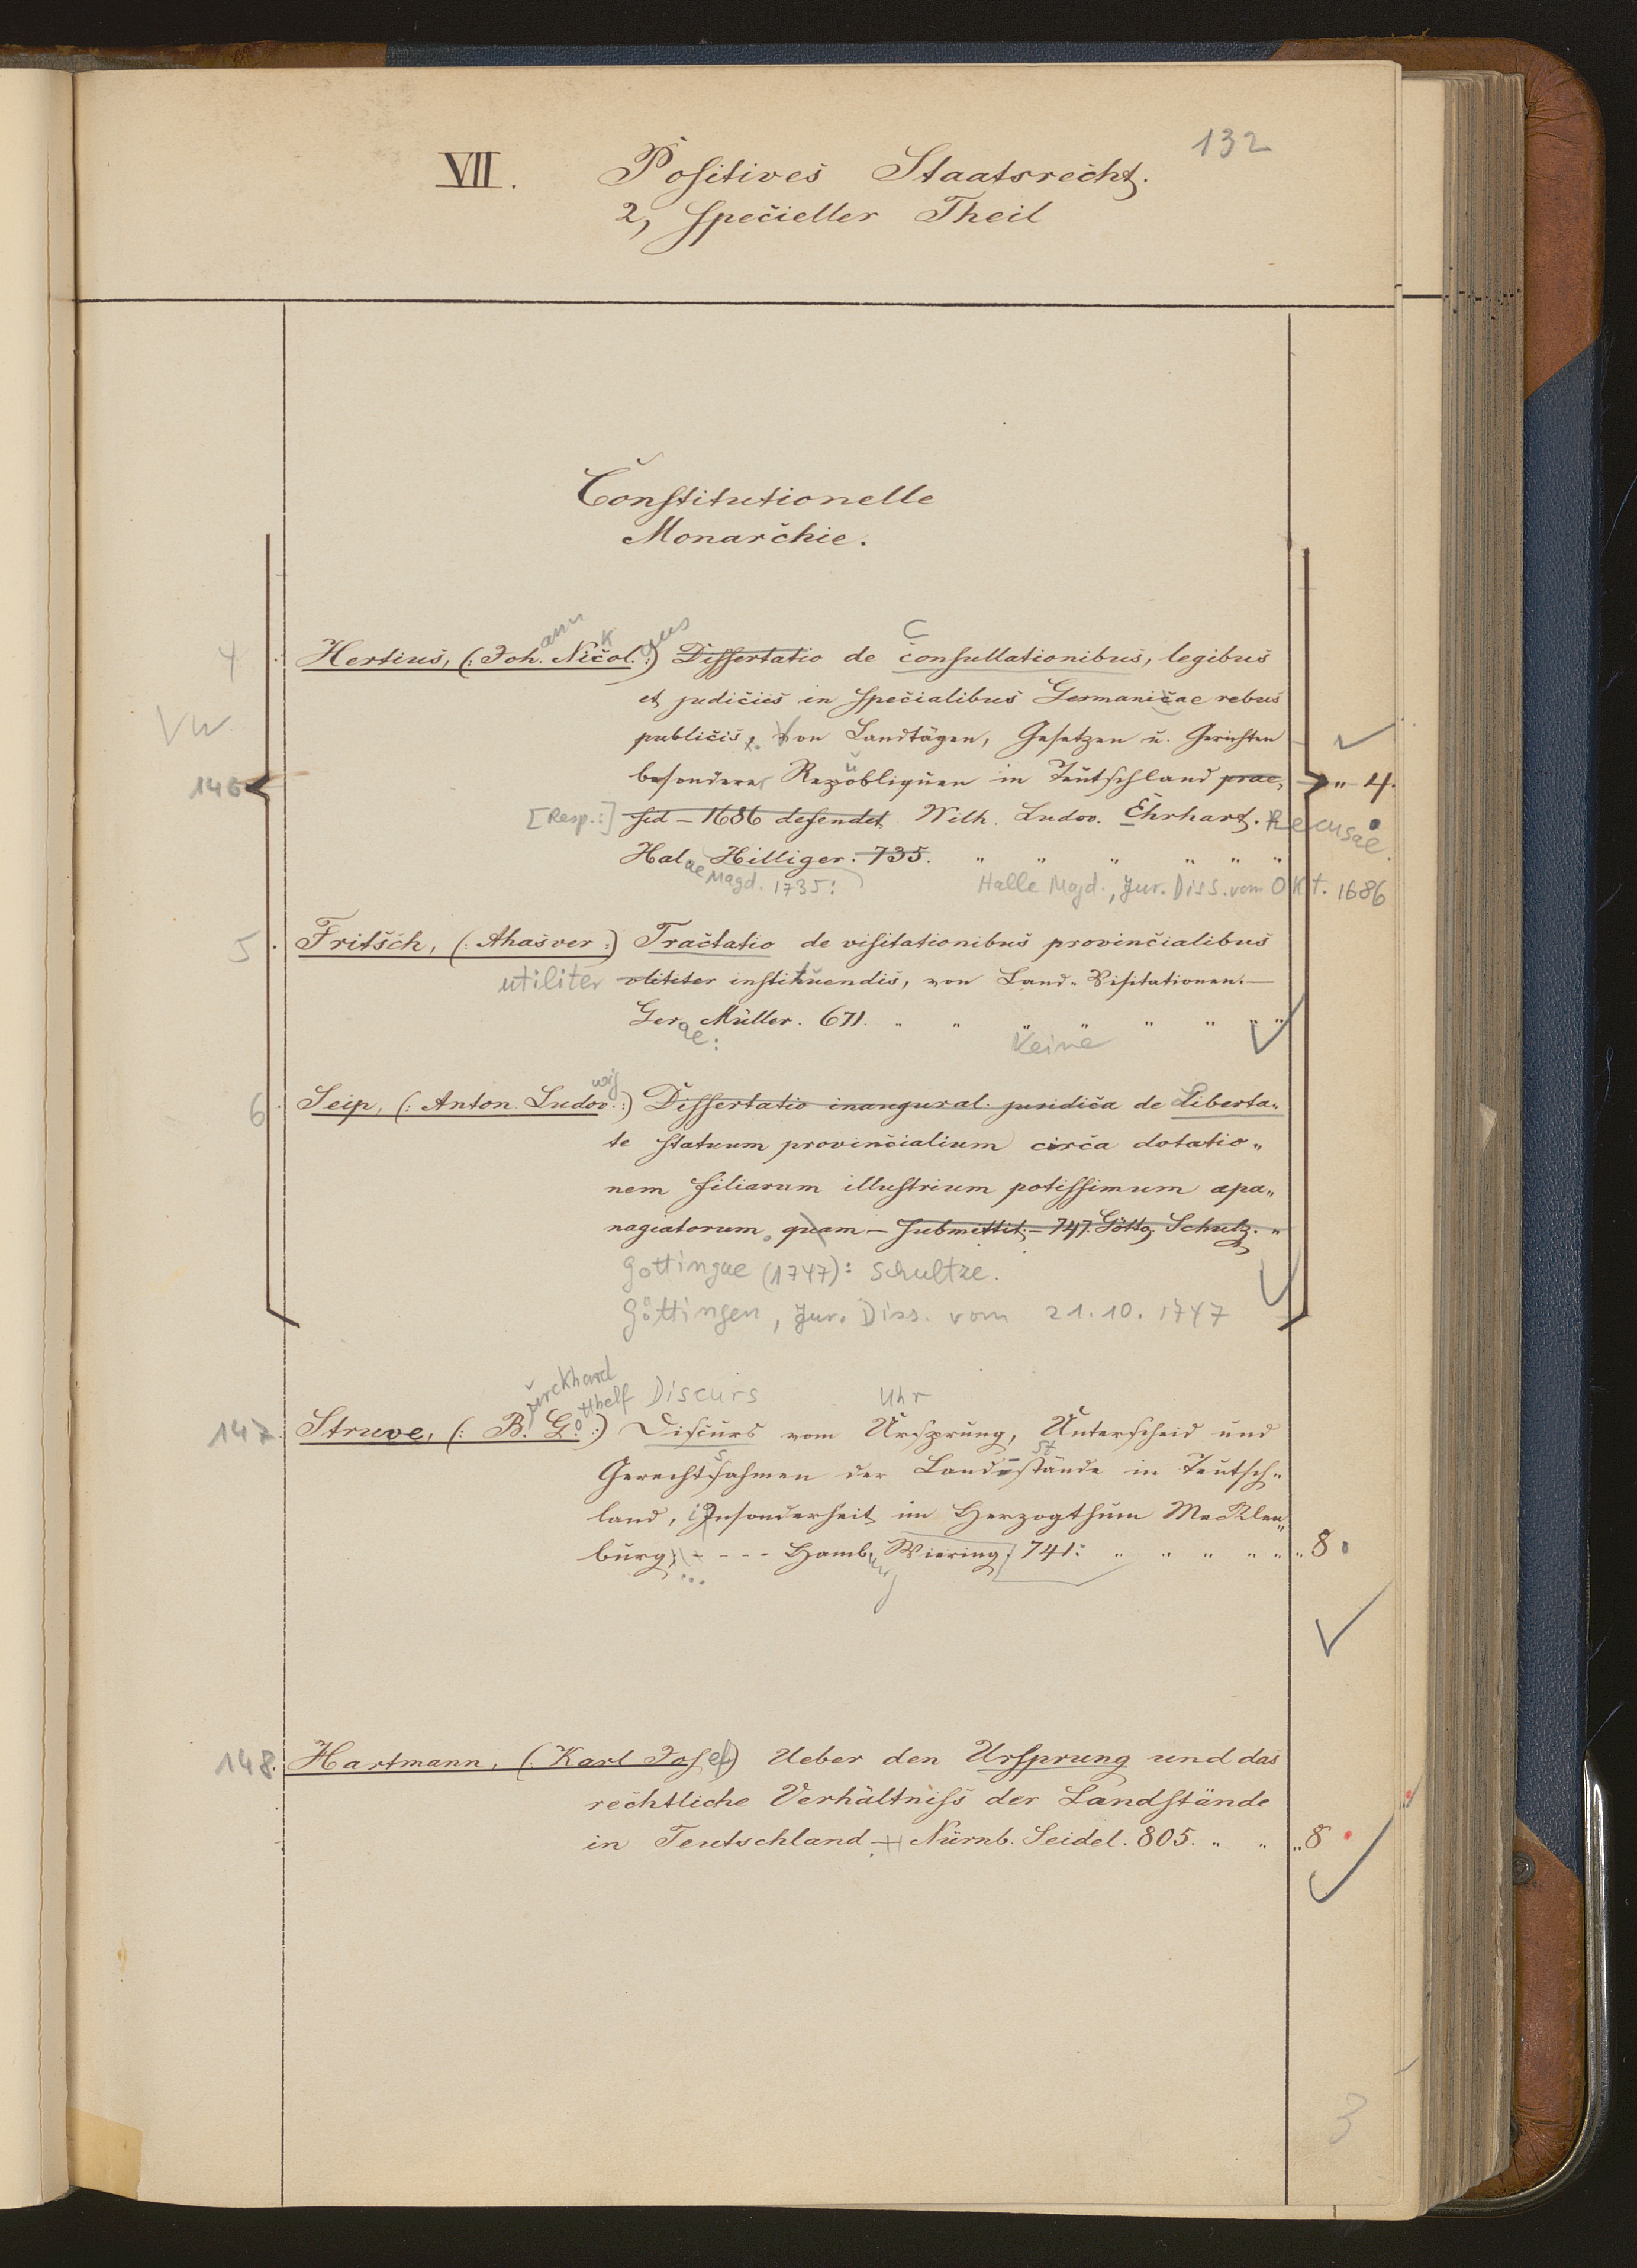 132
VII. Positives Staatsrecht.
2, specieller Theil
Constitutionelle
Monarchie.
ann k aus C
4 Hertius, (: Joh. Nicol. :) Dissertatio de consultationibus, legibus
et judiciis in specialibus Germanicae rebus
VW publicis, von Landtägen, Gesetzen u. Gerichten
146 besonderer Republiquen in Teutschland prae„ „ 4.
[Resp.:] sid – 1686 defendet Wilh. Ludov. Ehrhart. Recusae.
Hal Hilliger. 735. „ „ „ „ „ „
ae Magd. 1735: Halle Magd., Jur. Diss. vom Okt. 1686
5 Fritsch, (: Ahasver :) Tractatio de visitationibus provincialibus
utiliter olititer instituendis, von Land-Visitationen. —
Ger Müller. 671. „ „ „ „ „ „ „ „
ae: Keine
wig
6 Seip, (: Anton Ludov. :) Dissertatio inaugural. juridica de Liberta„
te statuum provincialium circa dotatio„
nem filiarum illustrium potissimum apa„
nagiatorum quam – submittit. – 747. Götto. Schulz. „
Gottingae (1747): Schultze.
Göttingen, Jur. Diss. vom 21.10.1747
urckhard
otthelf Discurs Uhr
147. Struve, (: B. G. :) Discurs vom Ursprung, Unterscheid und
s st
Gerechtsahmen der Land-stände in Teutsch„
land, insonderheit im Herzogthum Mecklen„
burg, - - - - Hamb. Wiering. 741: „ „ „ „ „ „ 8.
... urg
148. Hartmann, (: Karl Josef) Ueber den Ursprung und das
rechtliche Verhältniss der Landstände
in Teutschland – Nürnb. Seidel. 805. „ „ „ 8
3